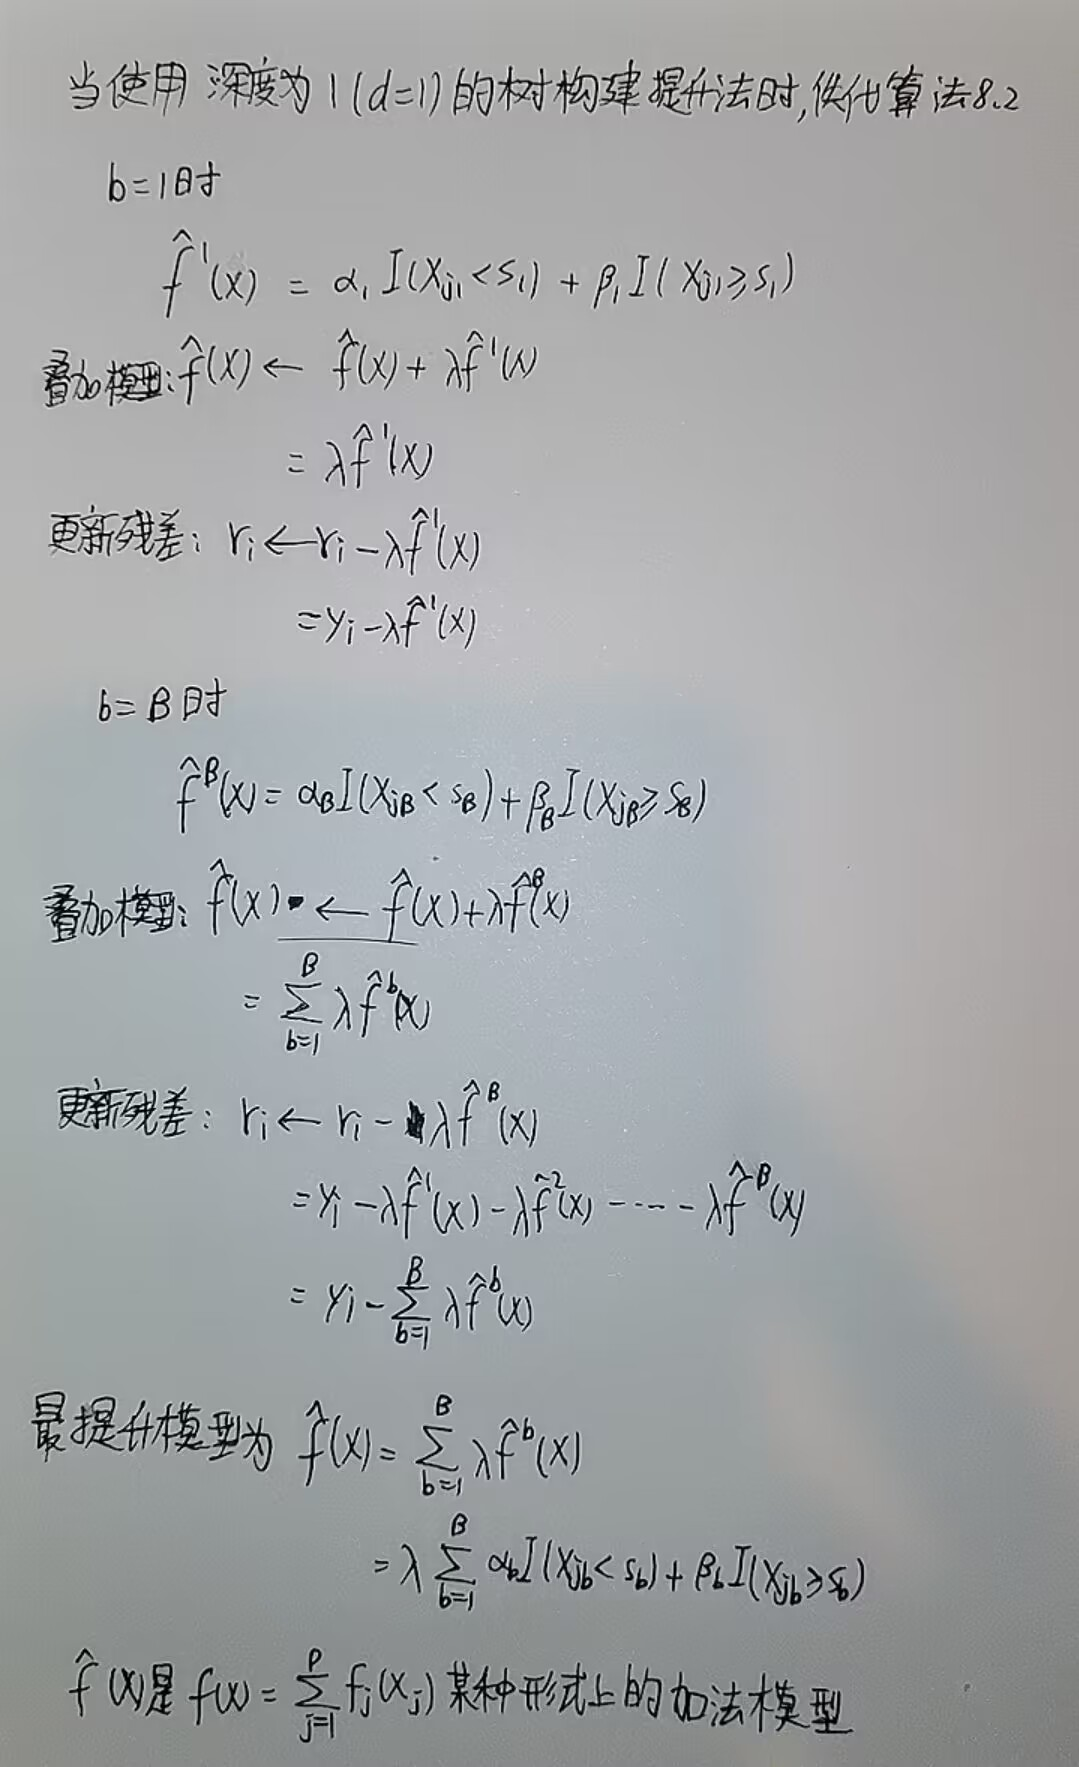 当使用 深度为1(d=1)的树构建提升法时,依优算法8.2
b=1时
f̂¹(x) = α₁I(Xj₁<S₁) + β₁I(Xj₁≥S₁)
叠加模型: f̂(X) ← f̂(X) + λf̂¹(X)
= λf̂¹(X)
更新残差: rᵢ ← rᵢ - λf̂¹(X)
= yᵢ - λf̂¹(X)
b=B时
f̂ᴮ(X) = α_B I(X_{jB} < S_B) + β_B I(X_{jB} ≥ S_B)
叠加模型: f̂(X) ← f̂(X) + λf̂ᴮ(X)
= Σ_{b=1}^{B} λf̂ᵇ(X)
更新残差: rᵢ ← rᵢ - λf̂ᴮ(X)
= yᵢ - λf̂¹(X) - λf̂²(X) ----- λf̂ᴮ(X)
= yᵢ - Σ_{b=1}^{B} λf̂ᵇ(X)
最提升模型为 f̂(X) = Σ_{b=1}^{B} λf̂ᵇ(X)
= λ Σ_{b=1}^{B} α_b I(X_{jb} < S_b) + β_b I(X_{jb} ≥ S_b)
f̂(X)是 f(x) = Σ_{j=1}^{p} f_j(X_j) 某种形式上的加法模型